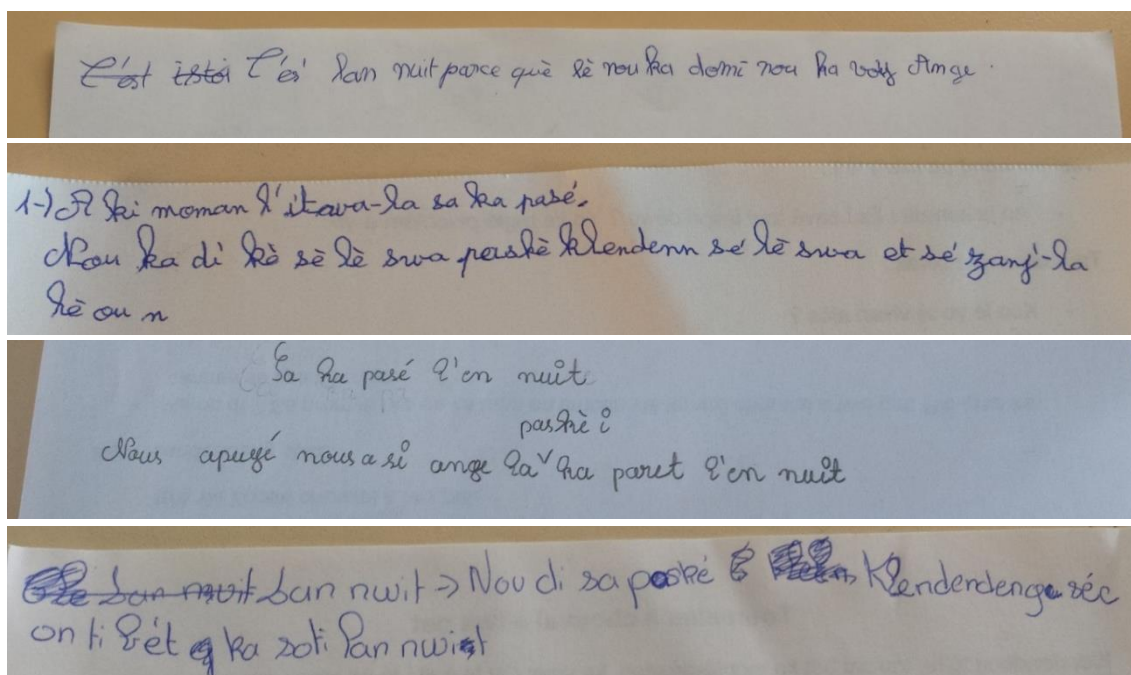 C'est C'ési lan nuit parce què lè nou ka domi nou ka voy Ange.
1-) A ki moman l'itava-la sa ka pasé.
Nou ka di kè sè lè swa paskè klendenn sé lè swa et sé zanj-la
kè ou n
Sa ka pasé l'en nuit
paskè i
Nous apuyé nous a si ange la ka paret l'en nuit
lan nuit lan nwit → Nou di sa paské Klendendenga séc
on ti bét ka soti lan nwit